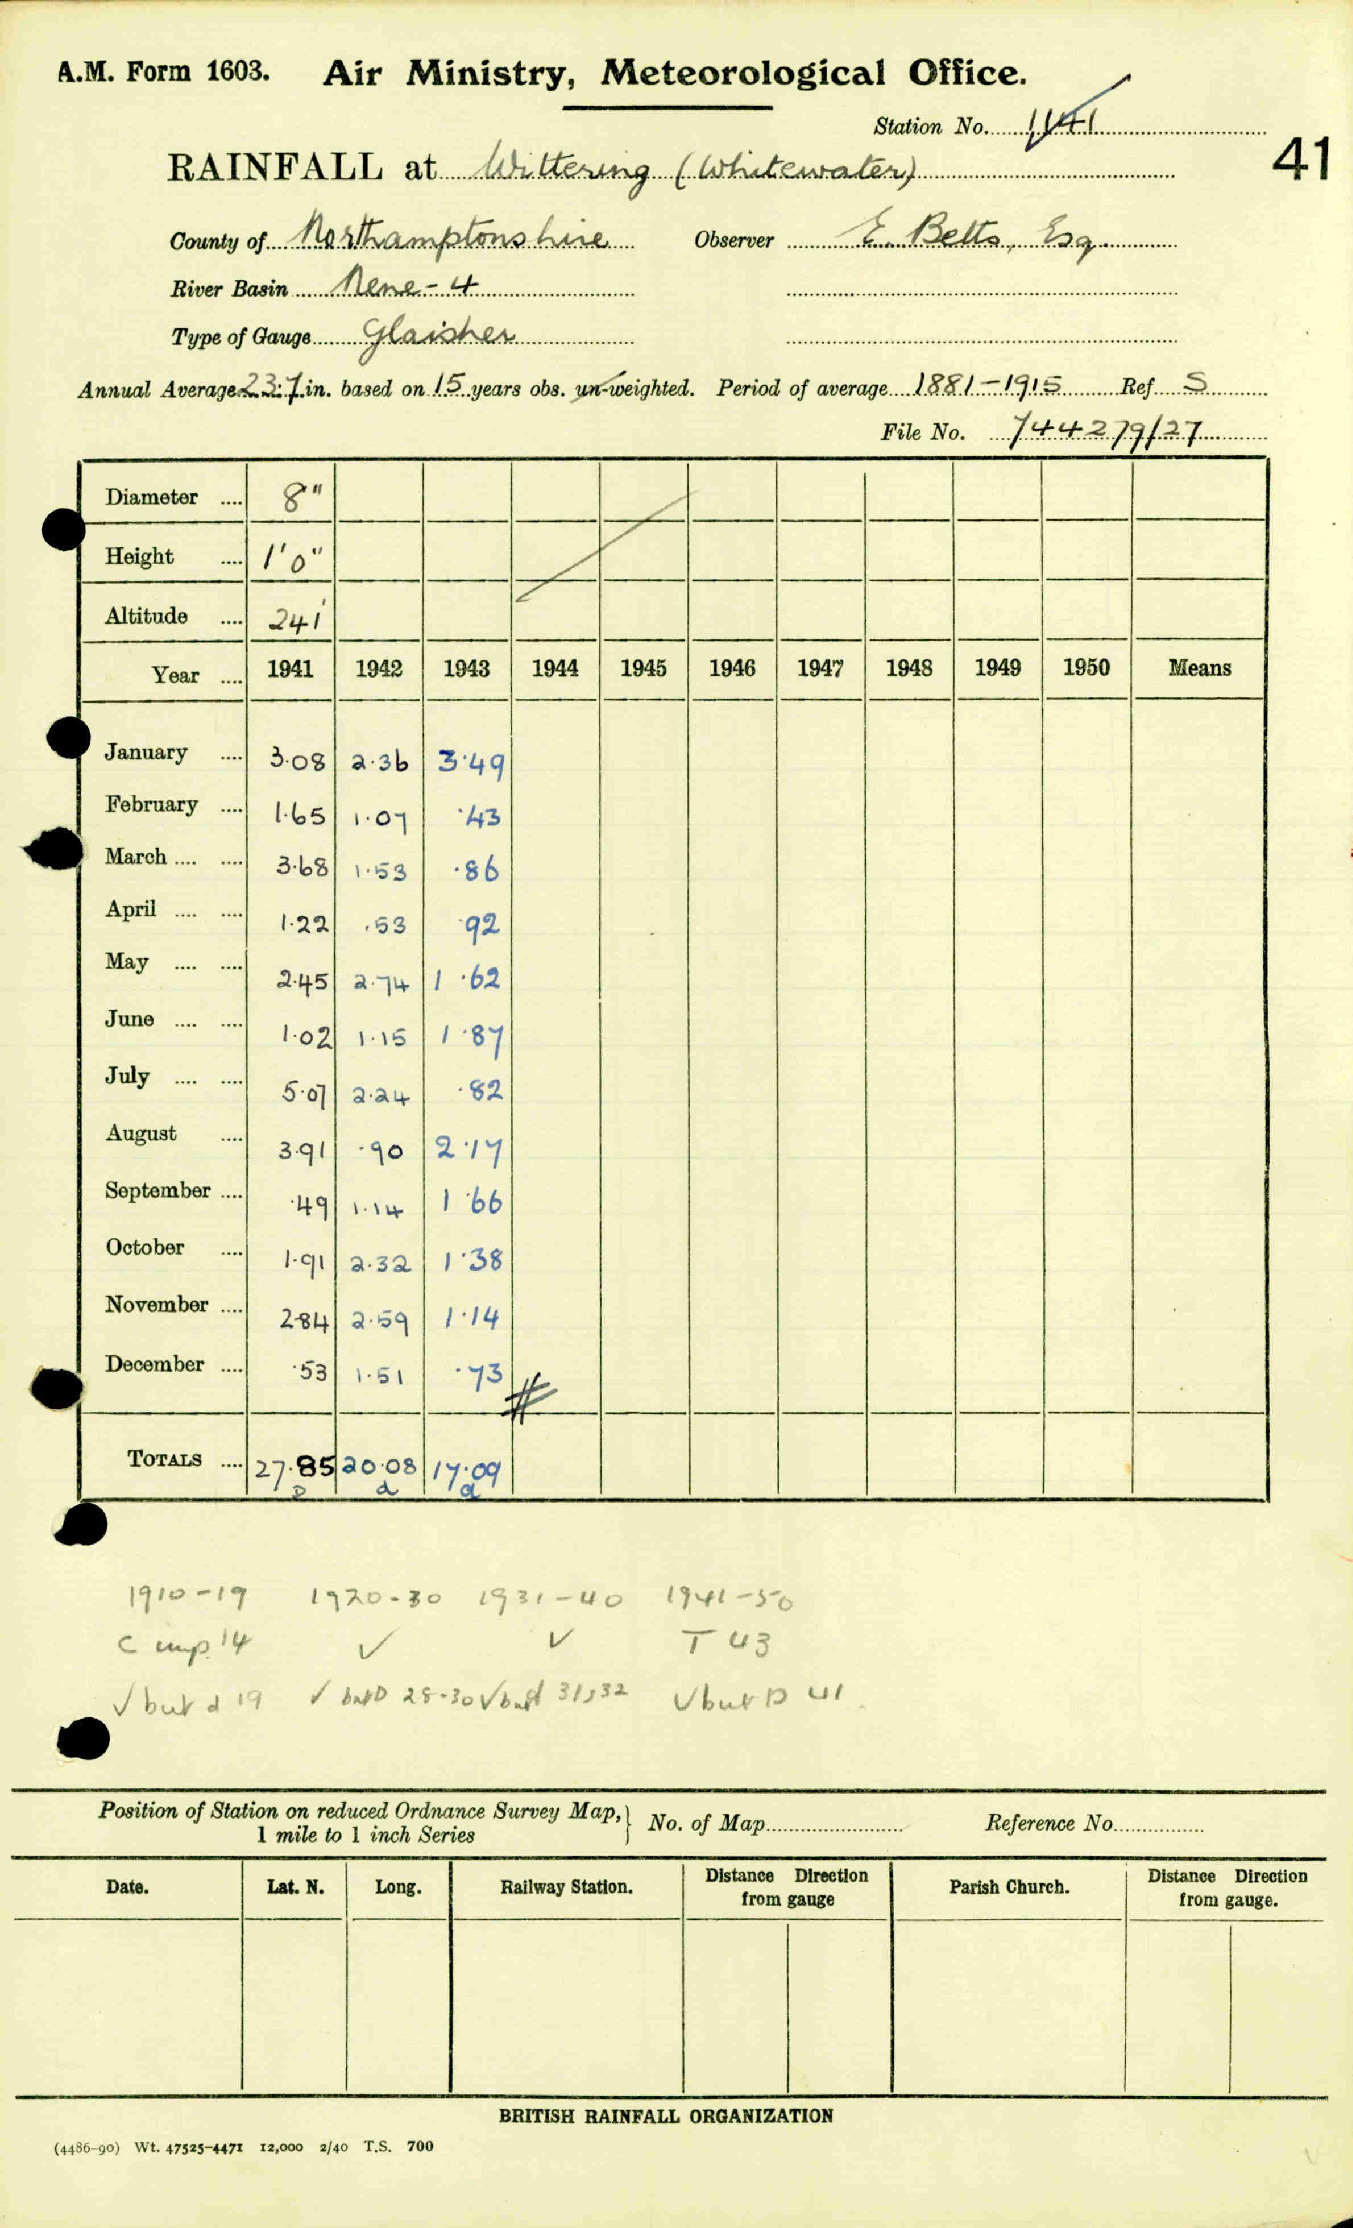 A.M. Form 1603. Air Ministry, Meteorological Office.
Station No. 1141
RAINFALL at Wittering (Whitewater) 41
County of Northamptonshire Observer E. Betts, Esq.
River Basin Nene - 4
Type of Gauge Glaisher
Annual Average 23.7 in. based on 15 years obs. un-weighted. Period of average 1881-1915 Ref. S
File No. 744279/27
Diameter .... 8"
Height .... 1'0"
Altitude .... 241'
Year .... 1941 1942 1943 1944 1945 1946 1947 1948 1949 1950 Means
January .... 3.08 2.36 3.49
February .... 1.65 1.07 .43
March .... .... 3.68 1.53 .86
April .... .... 1.22 .53 .92
May .... .... 2.45 2.74 1.62
June .... .... 1.02 1.15 1.87
July .... .... 5.07 2.24 .82
August .... 3.91 .90 2.17
September .... .49 1.14 1.66
October .... 1.91 2.32 1.38
November .... 2.84 2.59 1.14
December .... .53 1.51 .73
TOTALS .... 27.85 20.08 17.09
D d d
1910-19 1920-30 1931-40 1941-50
C imp. 14 ✓ ✓ T 43
✓ but d 19 ✓ but D 28-30 ✓ but d 31,32 ✓ but D 41
Position of Station on reduced Ordnance Survey Map, } No. of Map Reference No.
1 mile to 1 inch Series
Date. Lat. N. Long. Railway Station. Distance from gauge Direction Parish Church. Distance Direction from gauge.
BRITISH RAINFALL ORGANIZATION
(4486-90) Wt. 47525-4471 12,000 2/40 T.S. 700